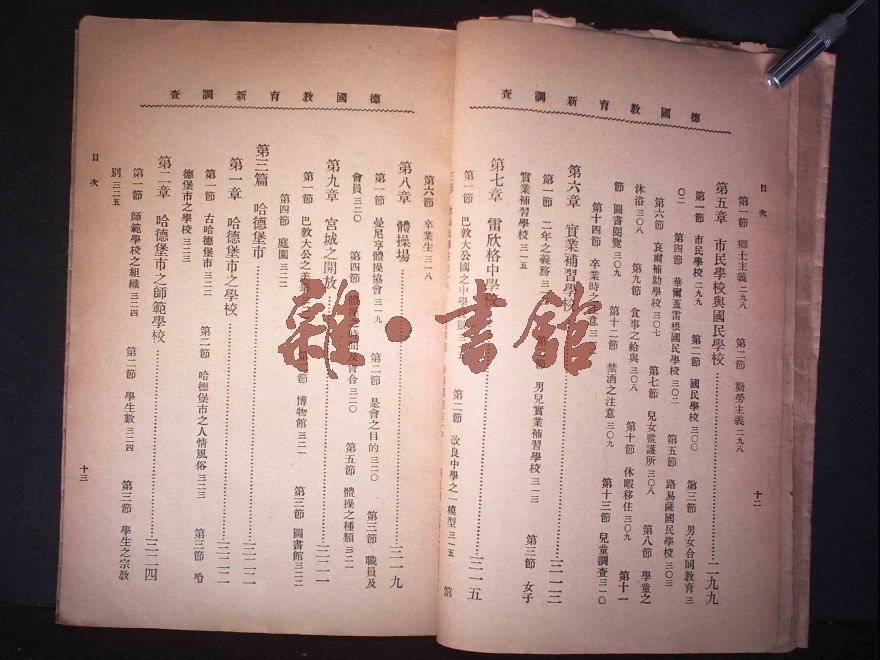 德國教育新調查
目次
十二
第一節 鄉土主義 二九八 第二節 勤勞主義 二九八
第五章 市民學校與國民學校 二九九
第一節 市民學校 二九九 第二節 國民學校 三〇〇 第三節 男女合同教育 三
〇二 第四節 華爾蓋雷根國民學校 三〇二 第五節 路易薩國民學校 三〇三
第六節 哀爾補助學校 三〇七 第七節 兒女監護所 三〇八 第八節 學童之
沐浴 三〇八 第九節 食事之給與 三〇八 第十節 休暇移住 三〇九 第十一
節 圖書閱覽 三〇九 第十二節 禁酒之注意 三〇九 第十三節 兒童調查 三一〇
第十四節 卒業時之注意 三
第六章 實業補習學校 三一三
第一節 二年之義務 三一 節 男兒實業補習學校 三一三 第三節 女子
實業補習學校 三一五
第七章 雷欣格中學校 三一五
第一節 巴敦大公國之中學 第二節 改良中學之一模型 三一五 第
德國教育新調查
第六節 卒業生 三一八
第八章 體操場 三一九
第一節 曼尼亨體操協會 三一九 第二節 是會之目的 三二〇 第三節 職員及
會員 三二〇 第四節 時間及會合 三二〇 第五節 體操之種類 三二一
第九章 宮城之開放 三二一
第一節 巴敦大公之美 節 博物館 三二一 第三節 圖書館 三二二
第四節 庭園 三二二
第三篇 哈德堡市 三二三
第一章 哈德堡市之學校 三二三
第一節 古哈德堡市 三二三 第二節 哈德堡市之人情風俗 三二三 第三節 哈
德堡市之學校 三二三
第二章 哈德堡市之師範學校 三二四
第一節 師範學校之組織 三二四 第二節 學生數 三二四 第三節 學生之宗教
別 三二五
目次
十三
雜·書館